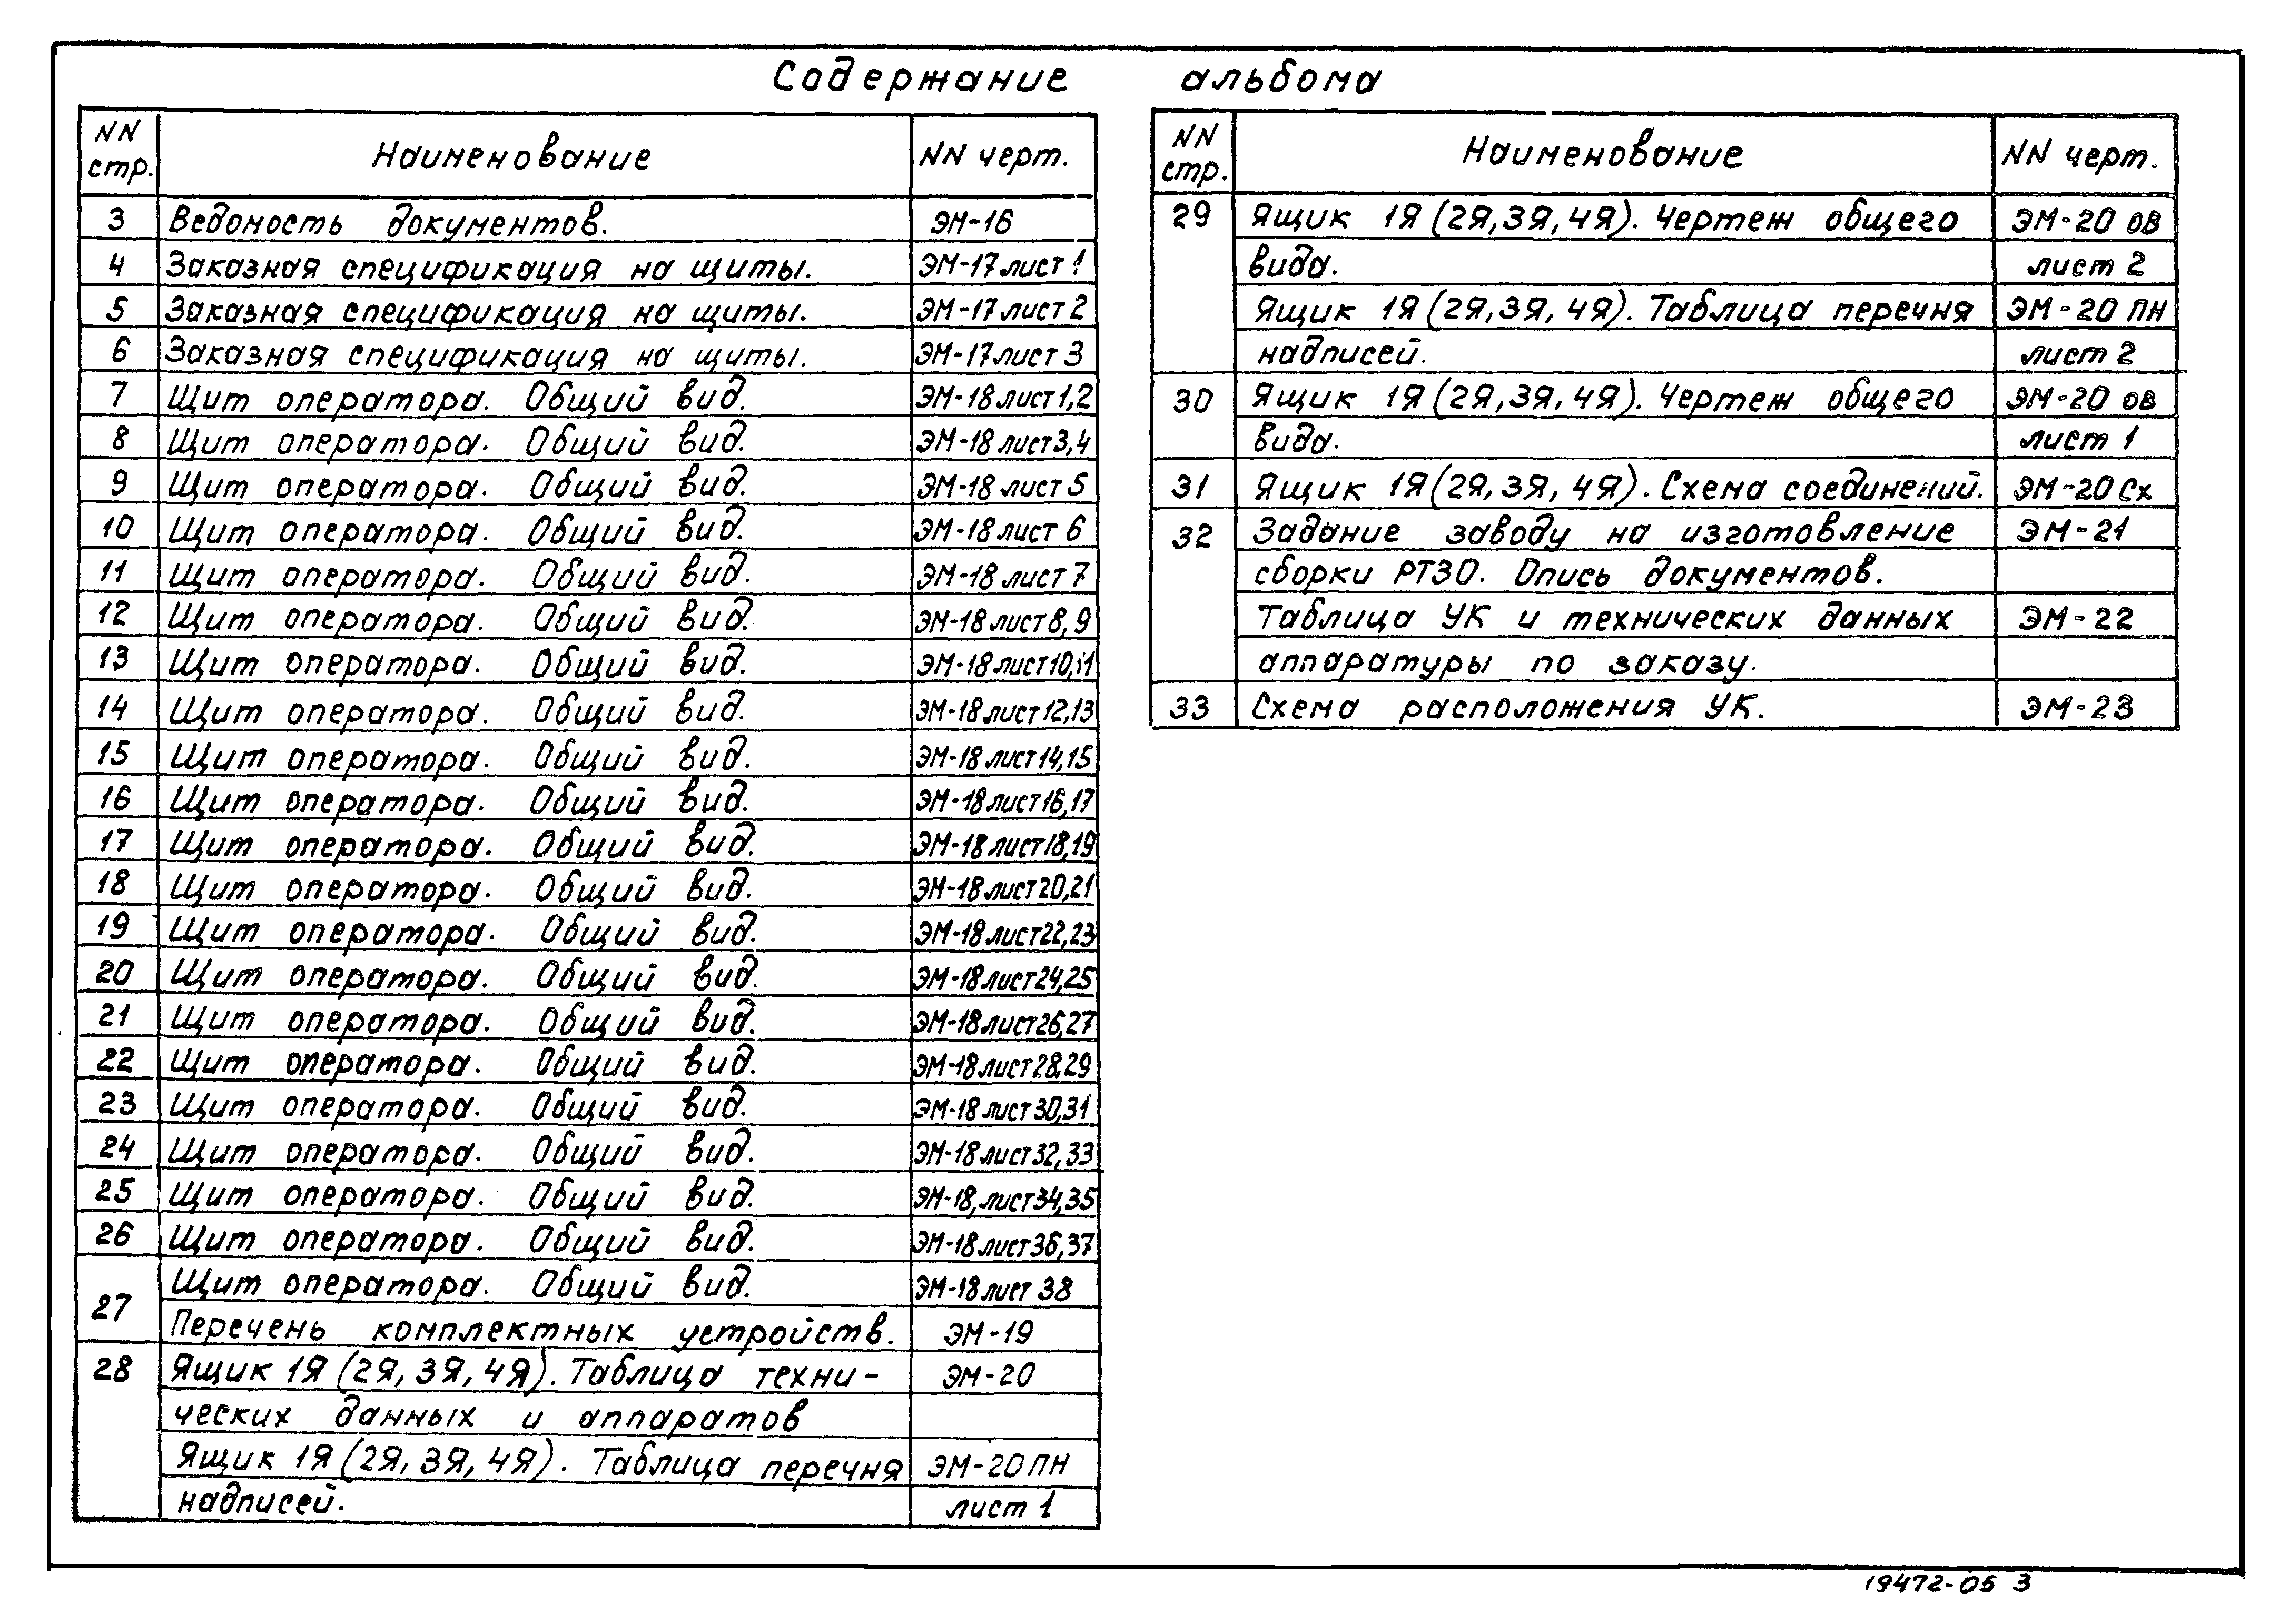 Содержание альбома
NN стр. Наименование NN черт.
3 Ведомость документов. ЭМ-16
4 Заказная спецификация на щиты. ЭМ-17 лист 1
5 Заказная спецификация на щиты. ЭМ-17 лист 2
6 Заказная спецификация на щиты. ЭМ-17 лист 3
7 Щит оператора. Общий вид. ЭМ-18 лист 1,2
8 Щит оператора. Общий вид. ЭМ-18 лист 3,4
9 Щит оператора. Общий вид. ЭМ-18 лист 5
10 Щит оператора. Общий вид. ЭМ-18 лист 6
11 Щит оператора. Общий вид. ЭМ-18 лист 7
12 Щит оператора. Общий вид. ЭМ-18 лист 8,9
13 Щит оператора. Общий вид. ЭМ-18 лист 10,11
14 Щит оператора. Общий вид. ЭМ-18 лист 12,13
15 Щит оператора. Общий вид. ЭМ-18 лист 14,15
16 Щит оператора. Общий вид. ЭМ-18 лист 16,17
17 Щит оператора. Общий вид. ЭМ-18 лист 18,19
18 Щит оператора. Общий вид. ЭМ-18 лист 20,21
19 Щит оператора. Общий вид. ЭМ-18 лист 22,23
20 Щит оператора. Общий вид. ЭМ-18 лист 24,25
21 Щит оператора. Общий вид. ЭМ-18 лист 26,27
22 Щит оператора. Общий вид. ЭМ-18 лист 28,29
23 Щит оператора. Общий вид. ЭМ-18 лист 30,31
24 Щит оператора. Общий вид. ЭМ-18 лист 32,33
25 Щит оператора. Общий вид. ЭМ-18, лист 34,35
26 Щит оператора. Общий вид. ЭМ-18 лист 36,37
27 Щит оператора. Общий вид. ЭМ-18 лист 38
Перечень комплектных устройств. ЭМ-19
28 Ящик 1Я (2Я, 3Я, 4Я). Таблица техни- ЭМ-20
ческих данных и аппаратов
Ящик 1Я (2Я, 3Я, 4Я). Таблица перечня ЭМ-20 ПН
надписей. лист 1
NN стр. Наименование NN черт.
29 Ящик 1Я (2Я, 3Я, 4Я). Чертеж общего ЭМ-20 ОВ
вида. лист 2
Ящик 1Я (2Я, 3Я, 4Я). Таблица перечня ЭМ-20 ПН
надписей. лист 2
30 Ящик 1Я (2Я, 3Я, 4Я). Чертеж общего ЭМ-20 ОВ
вида. лист 1
31 Ящик 1Я (2Я, 3Я, 4Я). Схема соединений. ЭМ-20 Сх
32 Задание заводу на изготовление ЭМ-21
сборки РТЗО. Опись документов.
Таблица УК и технических данных ЭМ-22
аппаратуры по заказу.
33 Схема расположения УК. ЭМ-23
19472-05 3